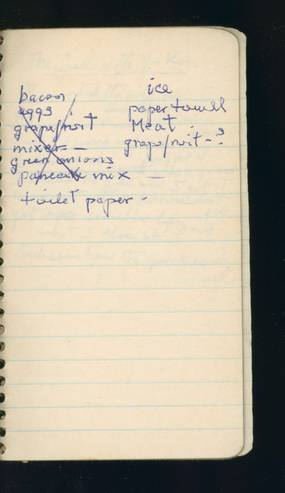 bacon
eggs
grapefruit
mixer -
green onions
pancake mix -
toilet paper -
ice
paper towell
Meat -
grapefruit - 3